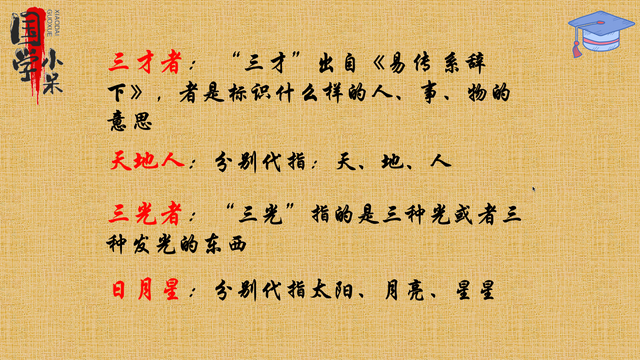 国学
小呆
XIAODAI
GUOXUE
三才者：“三才”出自《易传系辞
下》，者是标识什么样的人、事、物的
意思
天地人：分别代指：天、地、人
三光者：“三光”指的是三种光或者三
种发光的东西
日月星：分别代指太阳、月亮、星星